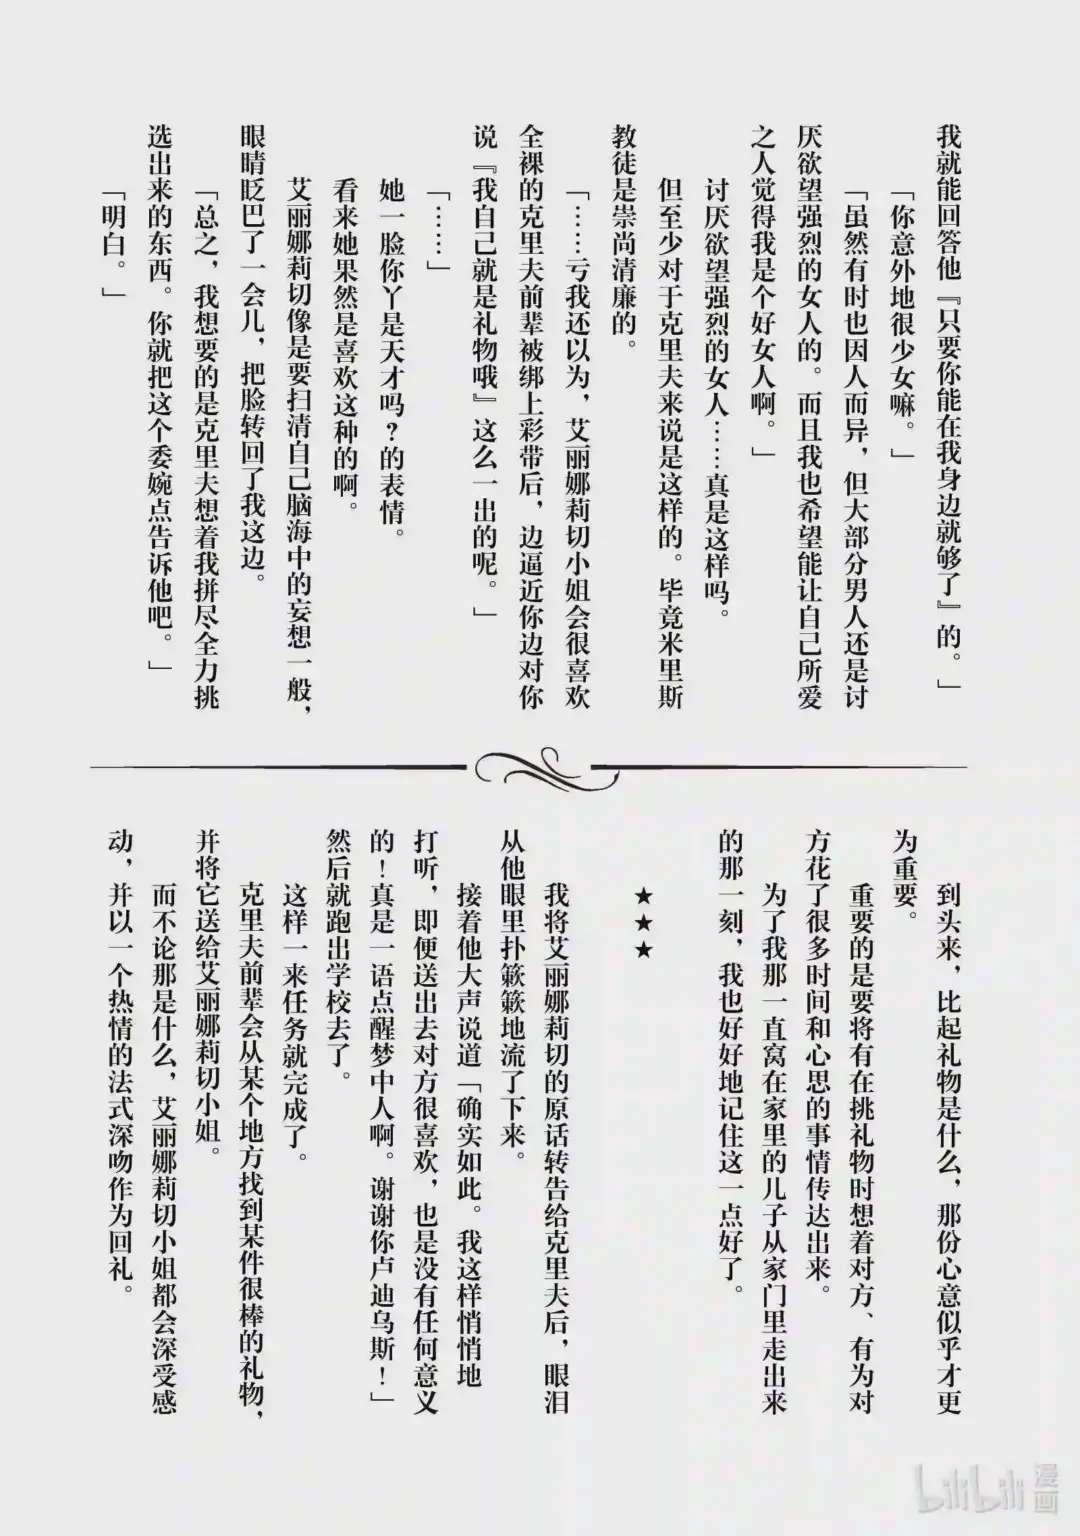 我就能回答他『只要你能在我身边就够了』的。」
「你意外地很少女嘛。」
「虽然有时也因人而异，但大部分男人还是讨
厌欲望强烈的女人的。而且我也希望能让自己所爱
之人觉得我是个好女人啊。」
讨厌欲望强烈的女人……真是这样吗。
但至少对于克里夫来说是这样的。毕竟米里斯
教徒是崇尚清廉的。
「……亏我还以为，艾丽娜莉切小姐会很喜欢
全裸的克里夫前辈被绑上彩带后，边逼近你边对你
说『我自己就是礼物哦』这么一出的呢。」
「……」
她一脸你丫是天才吗?的表情。
看来她果然是喜欢这种的啊。
艾丽娜莉切像是要扫清自己脑海中的妄想一般，
眼睛眨巴了一会儿，把脸转回了我这边。
「总之，我想要的是克里夫想着我拼尽全力挑
选出来的东西。你就把这个委婉点告诉他吧。」
「明白。」
到头来，比起礼物是什么，那份心意似乎才更
为重要。
重要的是要将有在挑礼物时想着对方、有为对
方花了很多时间和心思的事情传达出来。
为了我那一直窝在家里的儿子从家门里走出来
的那一刻，我也好好地记住这一点好了。
★★★
我将艾丽娜莉切的原话转告给克里夫后，眼泪
从他眼里扑簌簌地流了下来。
接着他大声说道「确实如此。我这样悄悄地
打听，即便送出去对方很喜欢，也是没有任何意义
的！真是一语点醒梦中人啊。谢谢你卢迪乌斯！」
然后就跑出学校去了。
这样一来任务就完成了。
克里夫前辈会从某个地方找到某件很棒的礼物，
并将它送给艾丽娜莉切小姐。
而不论那是什么，艾丽娜莉切小姐都会深受感
动，并以一个热情的法式深吻作为回礼。
bilibili 漫画